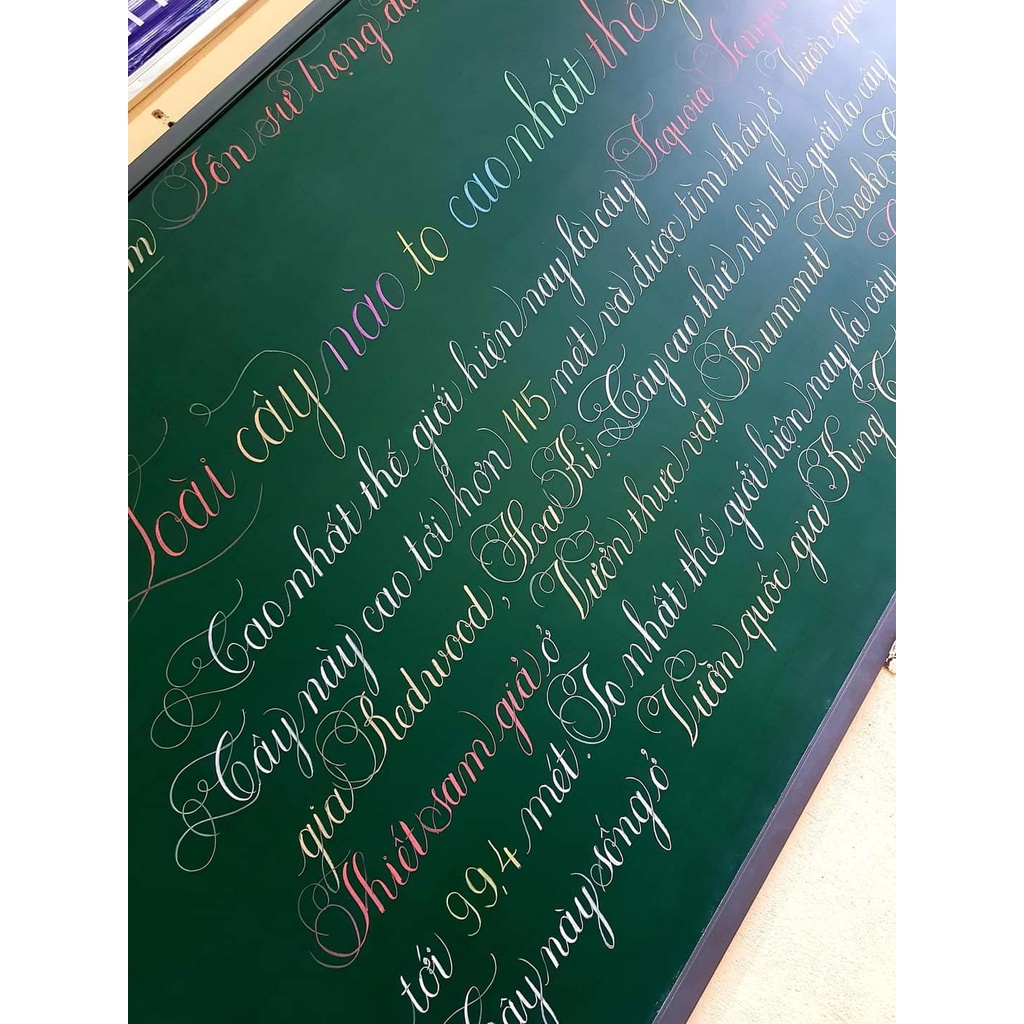 Tôn sư trọng
Loài cây nào to cao nhất thế
Cao nhất thế giới hiện nay là cây Sequoia
Cây này cao tới hơn 115 mét và được tìm thấy ở Vườn quốc
gia Redwood, Hoa Kì. Cây cao thứ nhì thế giới là cây
Thiết sam giả ở Vườn thực vật Brummit Creek
tới 99,4 mét. To nhất thế giới hiện nay là cây
Cây này sống ở Vườn quốc gia King